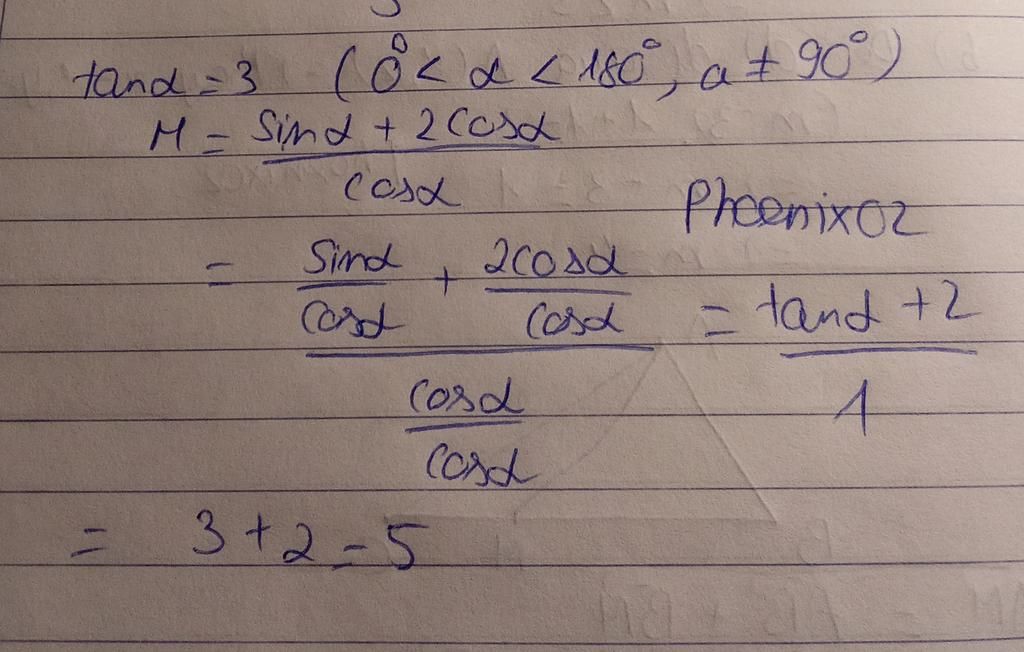 tanα = 3 (0° < α < 180°, a ≠ 90°)
M = (sinα + 2cosα) / cosα
Phoenix02
= (sinα/cosα + 2cosα/cosα) / (cosα/cosα) = (tanα + 2) / 1
= 3 + 2 = 5